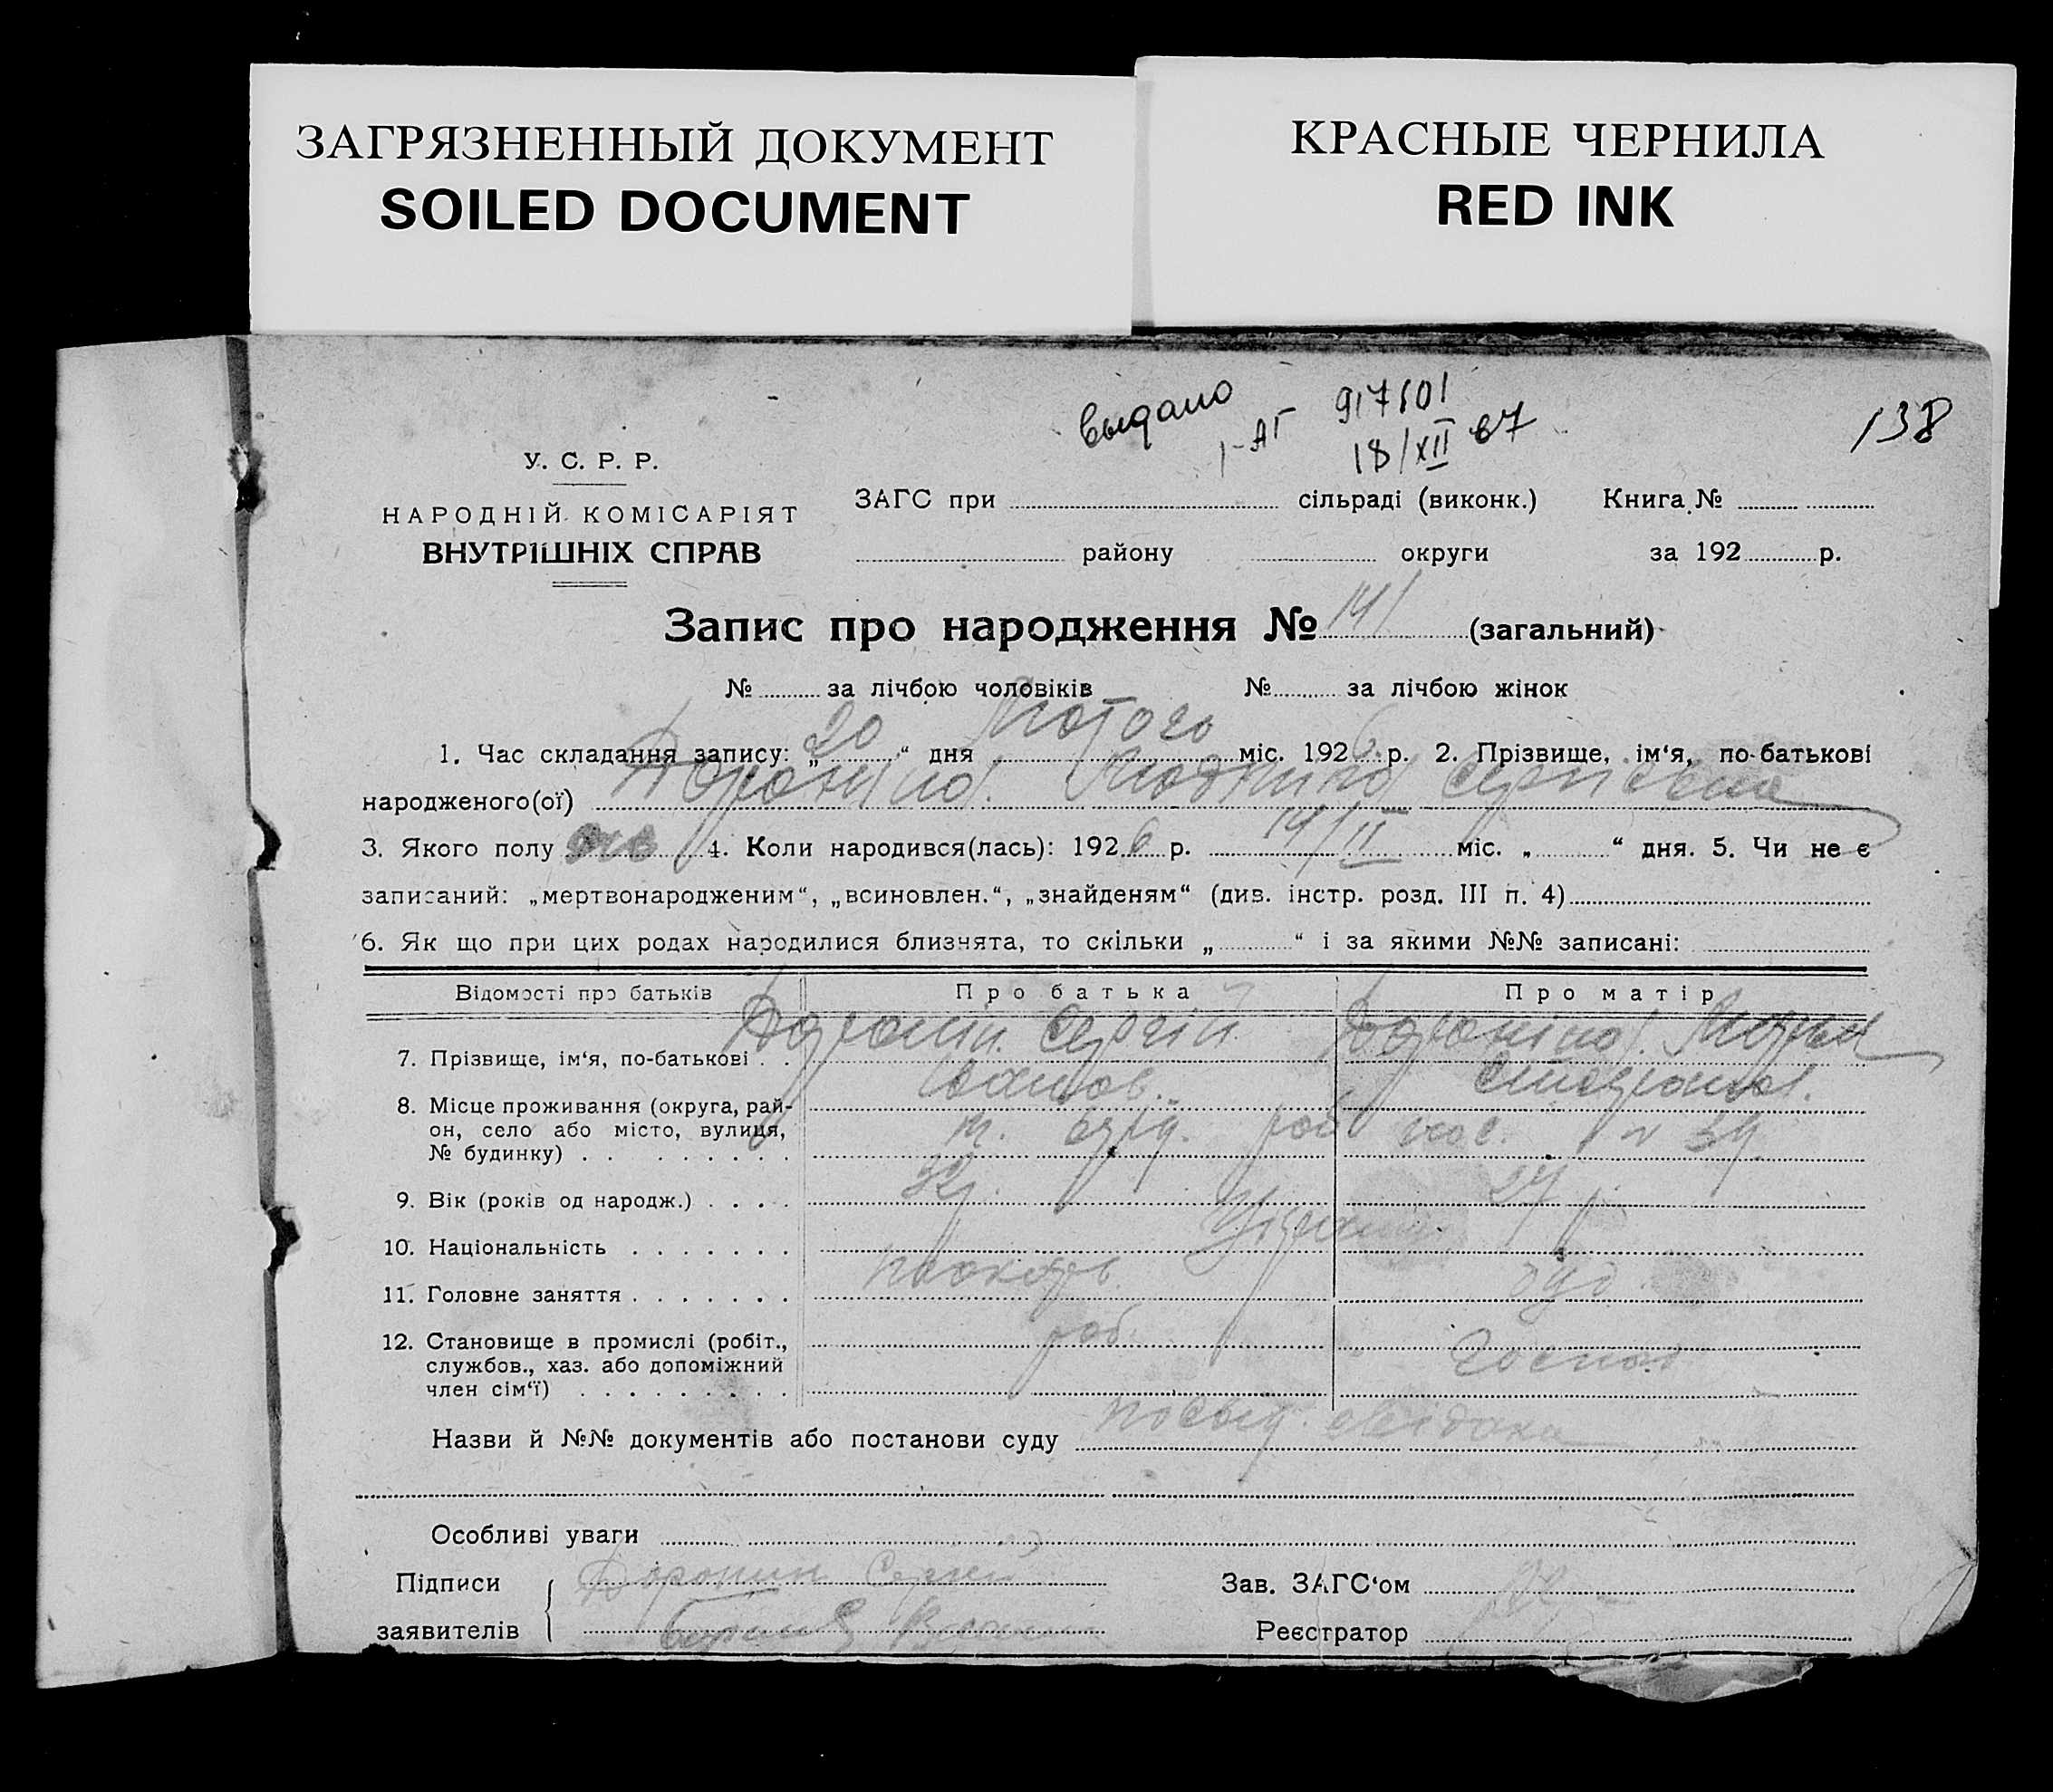 ЗАГРЯЗНЕННЫЙ ДОКУМЕНТ
SOILED DOCUMENT
КРАСНЫЕ ЧЕРНИЛА
RED INK
выдано
1-АГ 917101
18/XII 67
138
У. С. Р. Р.
НАРОДНІЙ КОМІСАРІЯТ
ВНУТРІШНІХ СПРАВ
ЗАГС при сільраді (виконк.) Книга №
району округи за 192 р.
Запис про народження № 141 (загальний)
№ за лічбою чоловіків № за лічбою жінок
1. Час складання запису: „ 20 “ дня Лютого міс. 1926 р. 2. Прізвище, ім‘я, по-батькові
народженого(ої) Дороніна Людмила Сергіевна
3. Якого полу жів 4. Коли народився(лась): 1926 р. 14/II міс. „ “ дня. 5. Чи не є
записаний: „мертвонародженим“, „всиновлен.“, „знайденям“ (див. інстр. розд. III п. 4)
6. Як що при цих родах народилися близнята, то скільки „ “ і за якими №№ записані:
Відомості про батьків Про батька Про матір
7. Прізвище, ім‘я, по-батькові . . Доронін Сергій Дороніна Марья
8. Місце проживання (округа, рай-
он, село або місто, вулиця,
№ будинку) . . . . . . . . 39
9. Вік (років од народж.) . . . . 32 р. 27 р.
10. Національність . . . . . . . Україн.
11. Головне заняття . . . . . . .
12. Становище в промислі (робіт.,
службов., хаз. або допоміжний
член сім‘ї) . . . . . . . . . роб. Госпо
Назви й №№ документів або постанови суду посвід. свідока
Особливі уваги
Підписи Доронин Сергей Зав. ЗАГС‘ом
заявителів Реєстратор